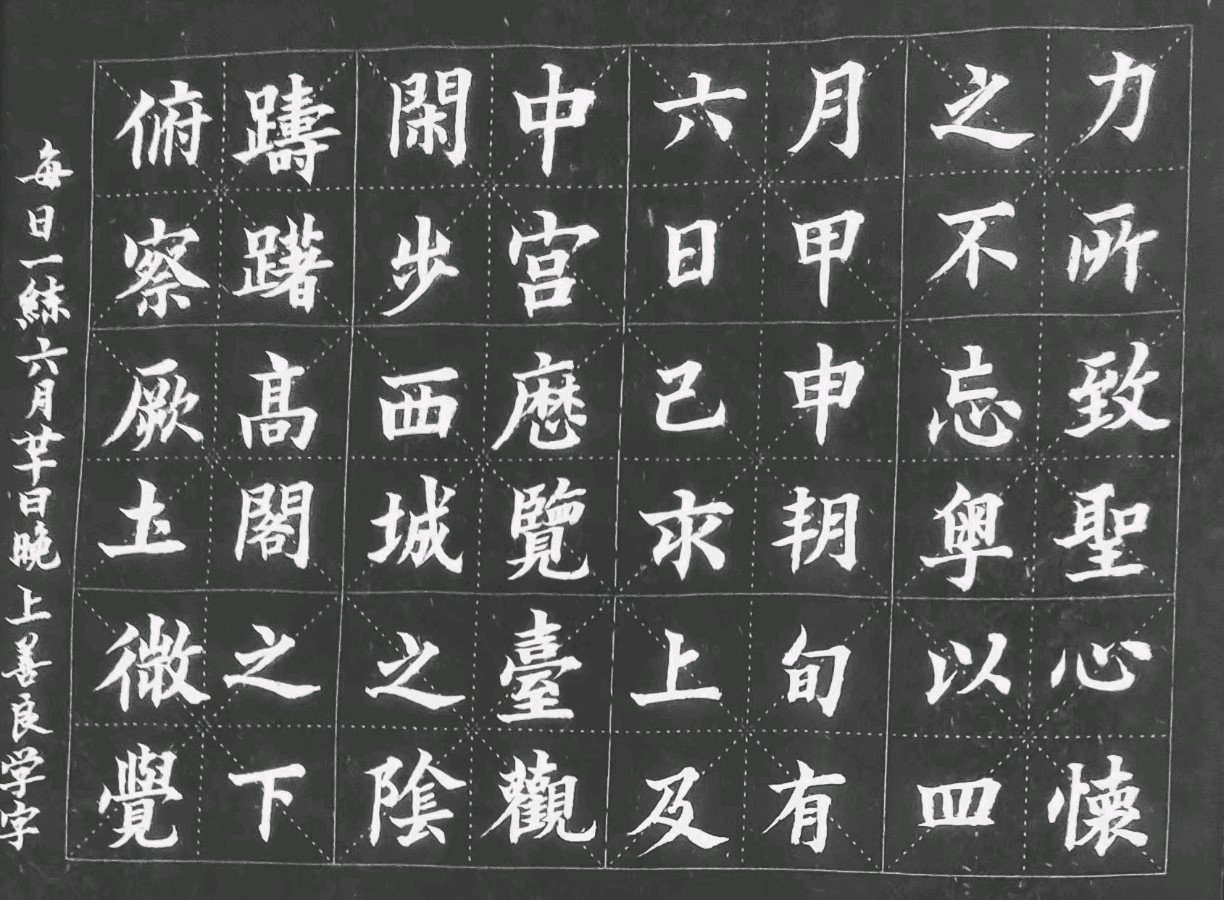 力所致聖心懷
之不忘粤以四
月甲申朔旬有
六日己求上及
中宫歷覽臺觀
閑步西城之陰
躊躇高閣之下
俯察厥土微覺
每日一練六月廿日晚上善良学字